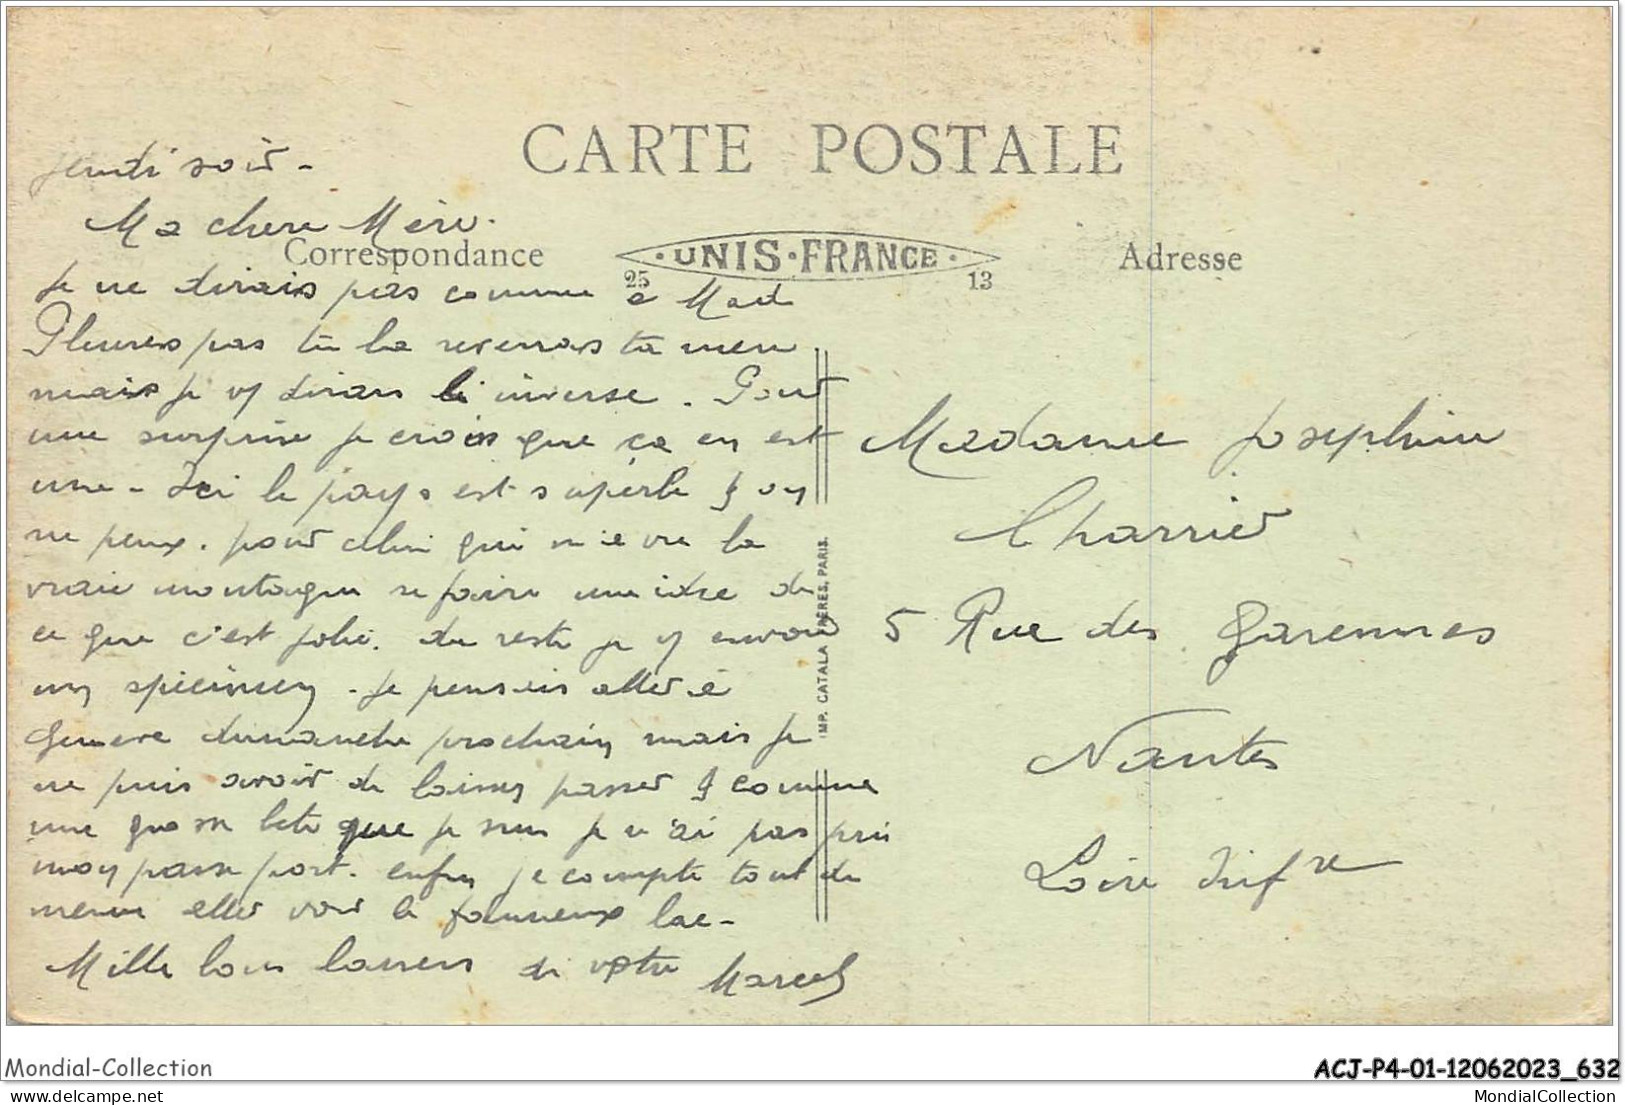 CARTE POSTALE
Jeudi soir -
Ma chere Mère.
Correspondance
UNIS · FRANCE
25
13
Adresse
Je ne dirais pas comme à Mad
Pleures pas tu la reverras ta mere
mais je vs dirais l'inverse. Pour
une surprise je crois que ça en est
une - Ici le pays est superbe on
ne peux. pour celui qui n'a vu la
vraie montagne se faire une idée de
ce que c'est joli. du reste je vs envoie
un spécimen - Je pensais aller à
Geneve dimanche prochain mais je
ne puis avoir de laissez passer et comme
une grosse bete que je suis je n'ai pas pris
mon passe port. enfin je compte tout de
meme aller voir le fameux lac -
Mille bons baisers de votre Marcel
Madame Josephine
Charrier
5 Rue des Garennes
Nantes
Loire Infre
IMP. CATALA FRÈRES, PARIS.
Mondial-Collection
ACJ-P4-01-12062023_632
delcampe.net
MondialCollection